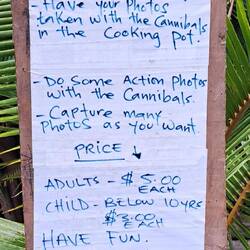 - Have your Photos
taken with the Cannibals
in the Cooking pot!
- Do Some Action Photos
with the Cannibals.
- Capture many
Photos as you want.
PRICE ↓
ADULTS - $5.00
EACH
CHILD - BELOW 10 YRS
$3.00
EACH
HAVE FUN.